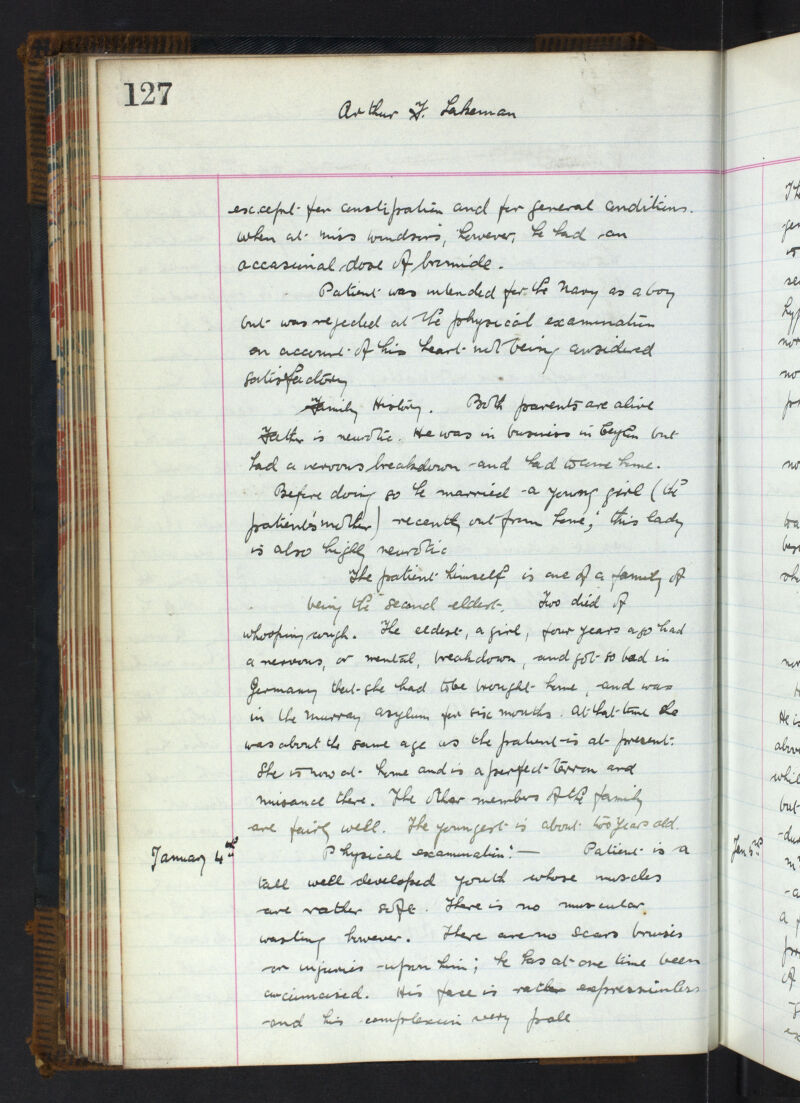 127
Arthur F. Lakeman
except for constipation and for general conditions.
When at Miss Windsors, however, he had an
occasional dose of bromide.
Patient was intended for the Navy as a boy
but was rejected at the physical examination
on account of his heart not being considered
satisfactory
Family History. Both parents are alive
Father is neurotic. He was in business in Ceylon but
had a nervous breakdown and had to come home.
Before doing so he married a young girl (the
patient's mother) recently out from home; this lady
is also highly neurotic
The patient himself is one of a family of
being the second eldest. Two died of
whooping cough. The eldest, a girl, four years ago had
a nervous, or mental, breakdown, and got so bad in
Germany that she had to be brought home, and was
in the Murray asylum for six months. At that time she
was about the same age as the patient is at present.
She is now at home and is a perfect terror and
nuisance there. The other members of the family
are fairly well. The youngest is about two years old.
January 4th Physical examination:— Patient is a
tall well developed youth whose muscles
are rather soft. There is no muscular
wasting however. There are no scars bruises
or injuries upon him; he has at one time been
circumcised. His face is rather expressionless
and his complexion very pale
Jan 5th